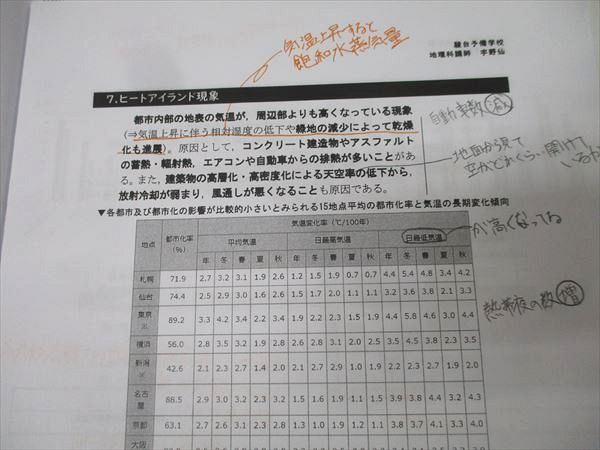 気温上昇すると
飽和水蒸気量
駿台予備学校
地理科講師 宇野仙
7.ヒートアイランド現象
都市内部の地表の気温が，周辺部よりも高くなっている現象
(⇒気温上昇に伴う相対湿度の低下や緑地の減少によって乾燥
化も進展)。原因として，コンクリート建造物やアスファルト
の蓄熱・輻射熱，エアコンや自動車からの排熱が多いことがあ
る。また，建築物の高層化・高密度化による天空率の低下から，
放射冷却が弱まり，風通しが悪くなることも原因である。
自動車数 減
地面から見て
空がどれくらい開けて
いるか
▼各都市及び都市化の影響が比較的小さいとみられる15地点平均の都市化率と気温の長期変化傾向
地点 都市化率 (%) 気温変化率 (℃/100年)
平均気温 日最高気温 日最低気温
が高くなってる
年 冬 春 夏 秋 年 冬 春 夏 秋 年 冬 春 夏 秋
札幌 71.9 2.7 3.2 3.1 1.9 2.6 1.2 1.5 1.9 0.7 0.7 4.4 5.4 4.8 3.4 4.2
仙台 74.4 2.5 2.9 3.0 1.6 2.6 1.5 1.7 2.0 1.1 1.1 3.2 3.6 3.8 2.1 3.3
東京※ 89.2 3.3 4.2 3.4 2.2 3.4 1.9 2.2 2.3 1.5 1.9 4.4 5.8 4.6 3.0 4.4
熱帯夜の数 増
横浜 56.0 2.8 3.5 3.2 1.9 2.8 2.6 2.8 3.1 2.0 2.5 3.5 4.5 3.8 2.3 3.5
新潟※ 42.6 2.1 2.3 2.7 1.4 2.0 2.1 2.7 2.9 1.0 1.7 2.2 2.3 2.7 1.9 2.0
名古屋 88.5 2.9 3.0 3.2 2.3 3.2 1.6 1.4 1.1 3.9 3.8 4.4 3.2 4.3
京都 63.1 2.7 2.6 3.1 2.3 2.8 1.3 1.0 1.9 1.2 1.1 3.8 3.7 4.1 3.3 4.0
大阪